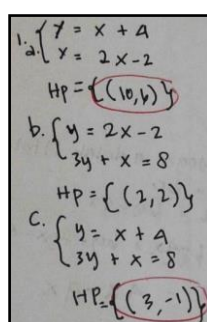 1. a. { y = x + 4
x = 2x-2
Hp = {(10,6)}
b. { y = 2x-2
3y + x = 8
Hp = {(2,2)}
c. { y = x + 4
3y + x = 8
HP = {(3,-1)}